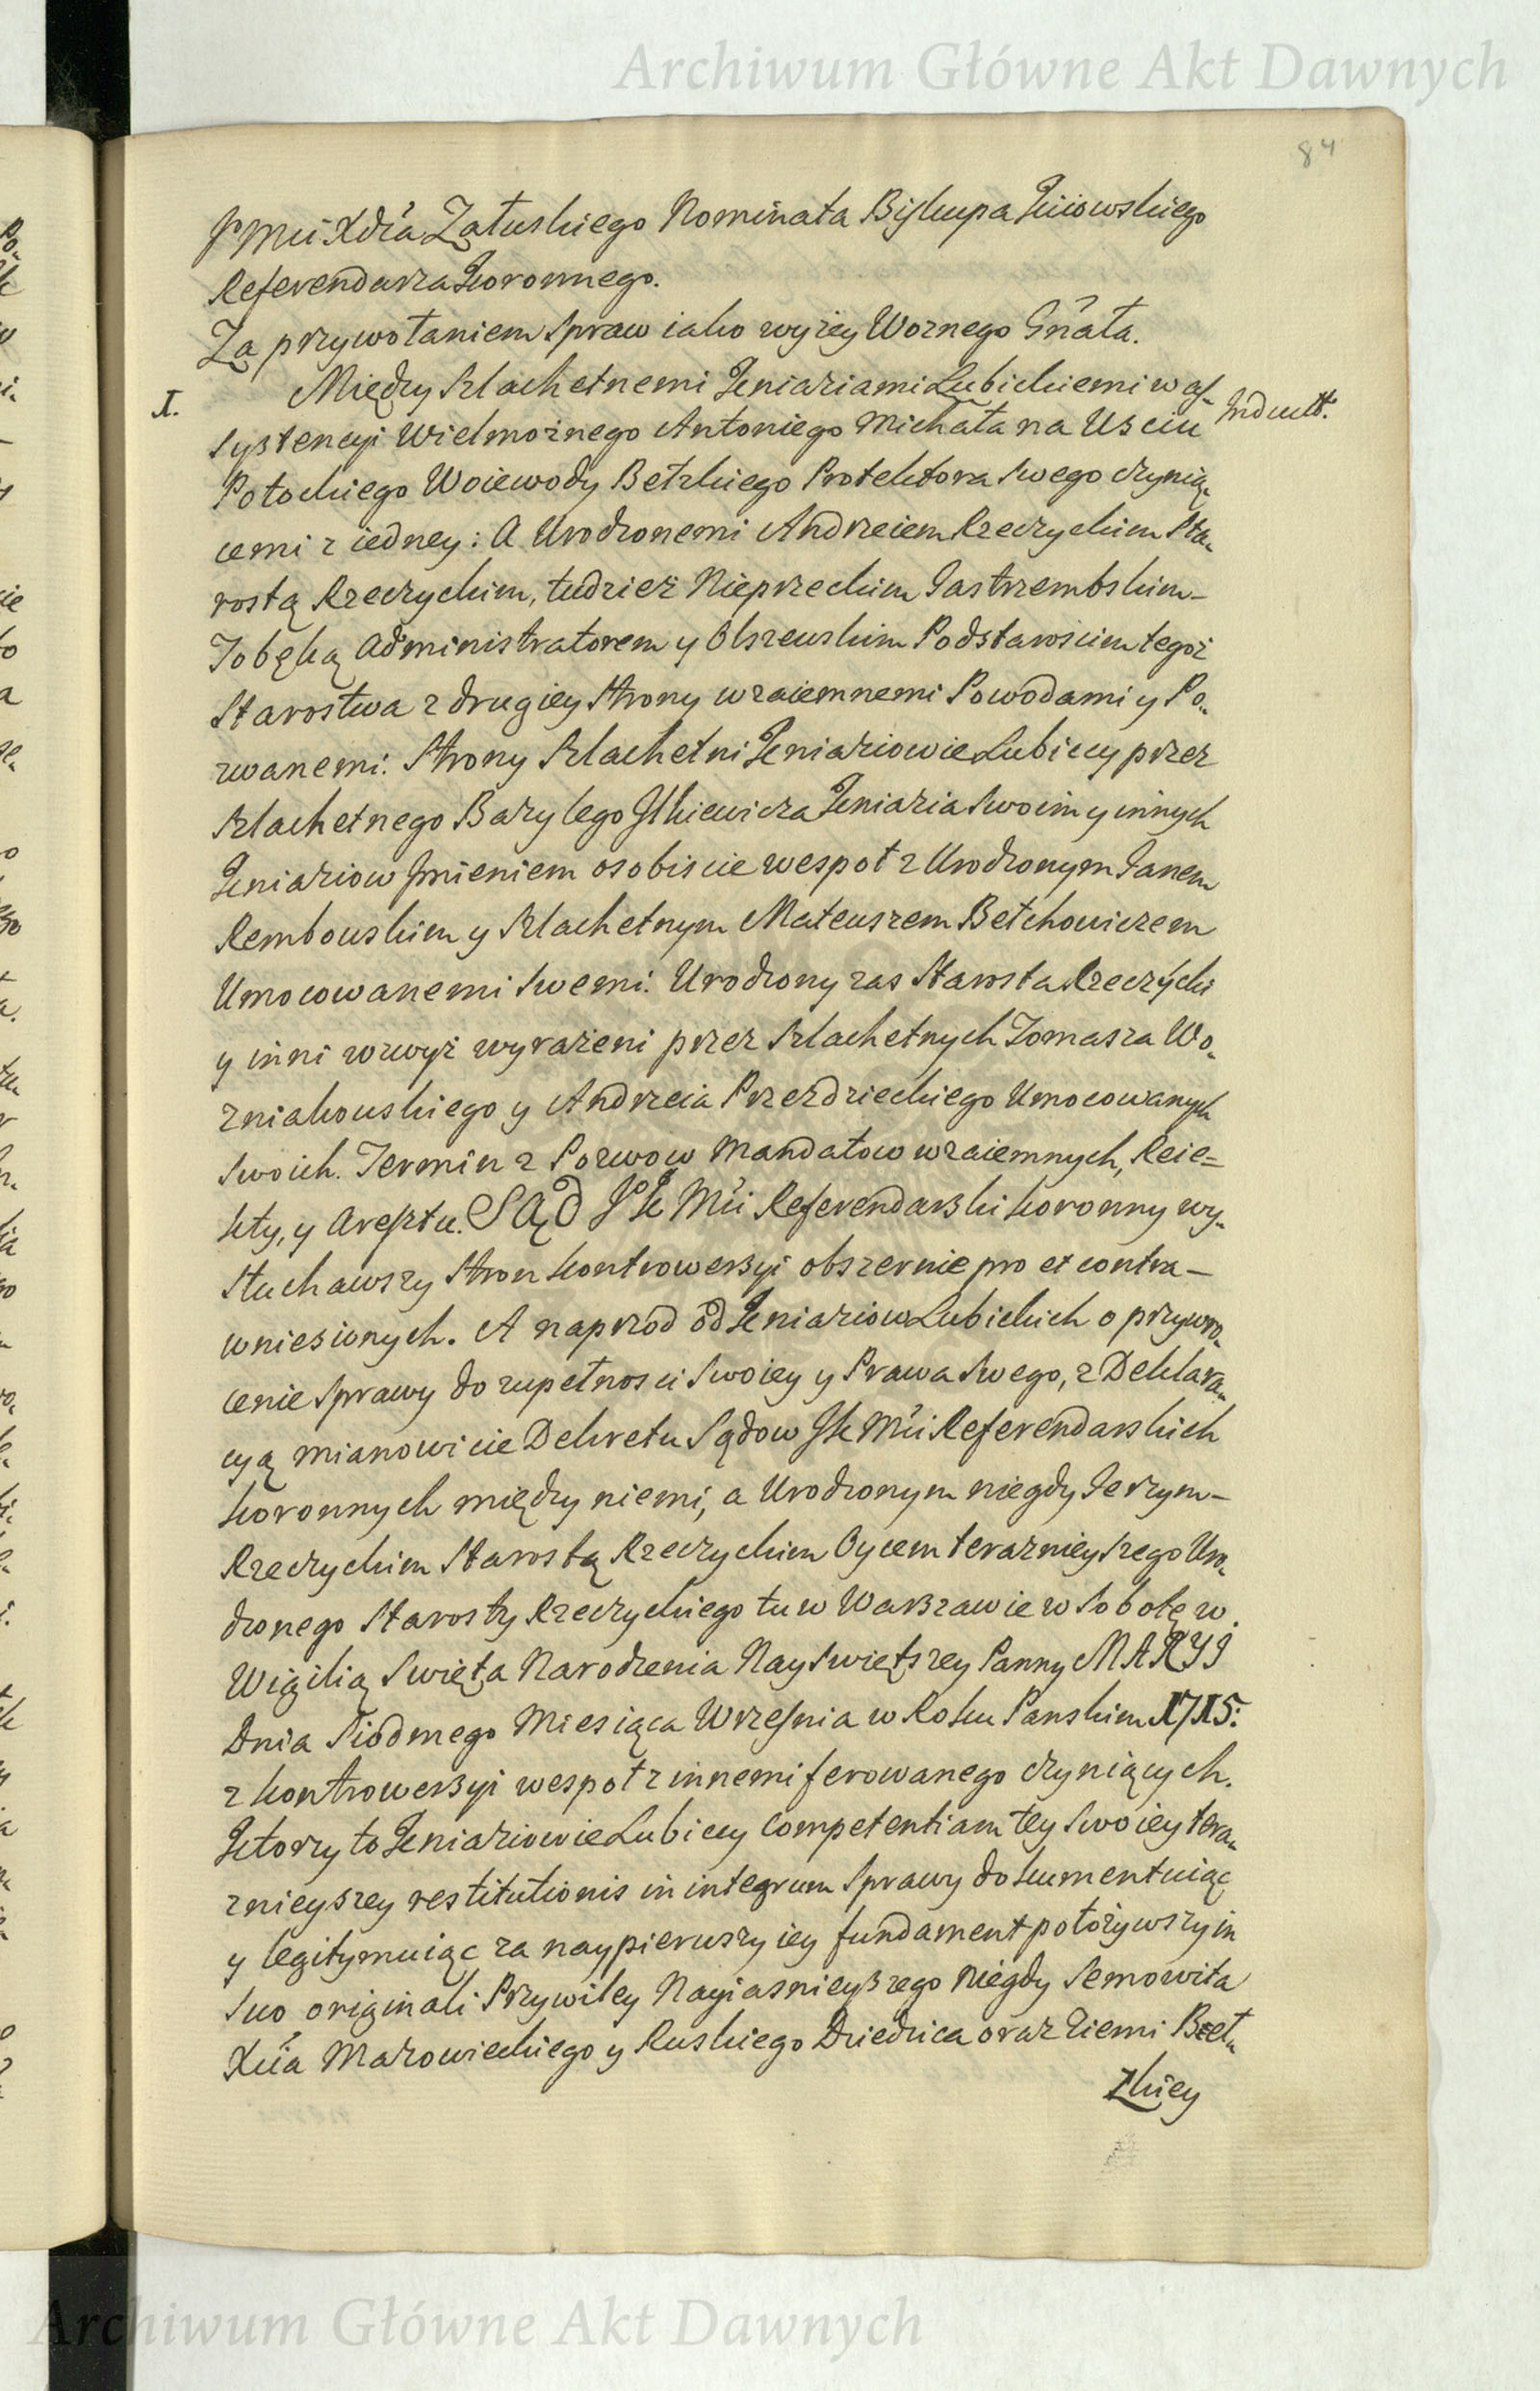 Archiwum Główne Akt Dawnych
84
JMći Xdza Załuskiego Nominata Biskupa Kiiowskiego
Referendarza Koronnego.
Za przywołaniem Spraw iako wyżey Woznego Gñała.
I. Między Szlachetnemi Kniaziami Lubickiemi w as- Induct.
systencyi Wielmożnego Antoniego Michała na Usciu
Potockiego Woiewody Bełzkiego Protektora swego czynią-
cemi z iedney: A Urodzonemi Andrzeiem Rzeczyckim Sta-
rostą Rzeczyckim, tudzież Nieprzeckim Jastrzembskim
Tobęką Administratorem y Olszewskim Podstarościm tegoż
Starostwa z drugiey Strony wzaiemnemi Powodami y Po-
zwanemi. Strony Szlachetni Kniaziowie Lubiccy przez
Szlachetnego Bazylego Ilkiewicza Kniazia swoim y innych
Kniaziow Imieniem osobiscie wespoł z Urodzonym Janem
Rembowskim y Szlachetnym Mateuszem Bełchowiczem
Umocowanemi swemi. Urodzony zas Starosta Rzeczycki
y inni wzwyż wyrażeni przez Szlachetnych Tomasza Wo-
zniakowskiego y Andrzeia Przezdzieckiego Umocowanych
swoich. Termin z Pozwow Mandatow wzaiemnych, Reie=
kty, y Aresztu. SĄD JK Mći Referendarski koronny wy-
słuchawszy Stron kontrowersyi obszernie pro et contra
wniesionych. A naprzod od Kniaziow Lubickich o przywro-
cenie Sprawy do zupełnosci swoiey y Prawa swego, z Deklara-
cyą mianowicie Dekretu Sądow JK Mći Referendarskich
koronnych między niemi, a Urodzonym niegdy Jerzym
Rzeczyckim Starostą Rzeczyckim Oycem teraznieyszego Uro-
dzonego Starosty Rzeczyckiego tu w Warszawie w Sobotę w
Wigilią Swięta Narodzenia Nayswiętszey Panny MARYI
Dnia Siodmego Miesiąca Września w Roku Panskim 1715:
z kontrowersyi wespoł z innemi ferowanego czyniących.
Ktorzy to Kniaziowie Lubiccy Competentiam tey swoiey tera-
znieyszey restitutionis in integrum Sprawy dokumentuiąc
y legitymuiąc za naypierwszy iey fundament położywszy in
suo originali Przywiley Nayiasnieyszego niegdy Semowita
Xcia Mazowieckiego y Ruskiego Dziedzica oraz Ziemi Beł-
zkiey
Archiwum Główne Akt Dawnych